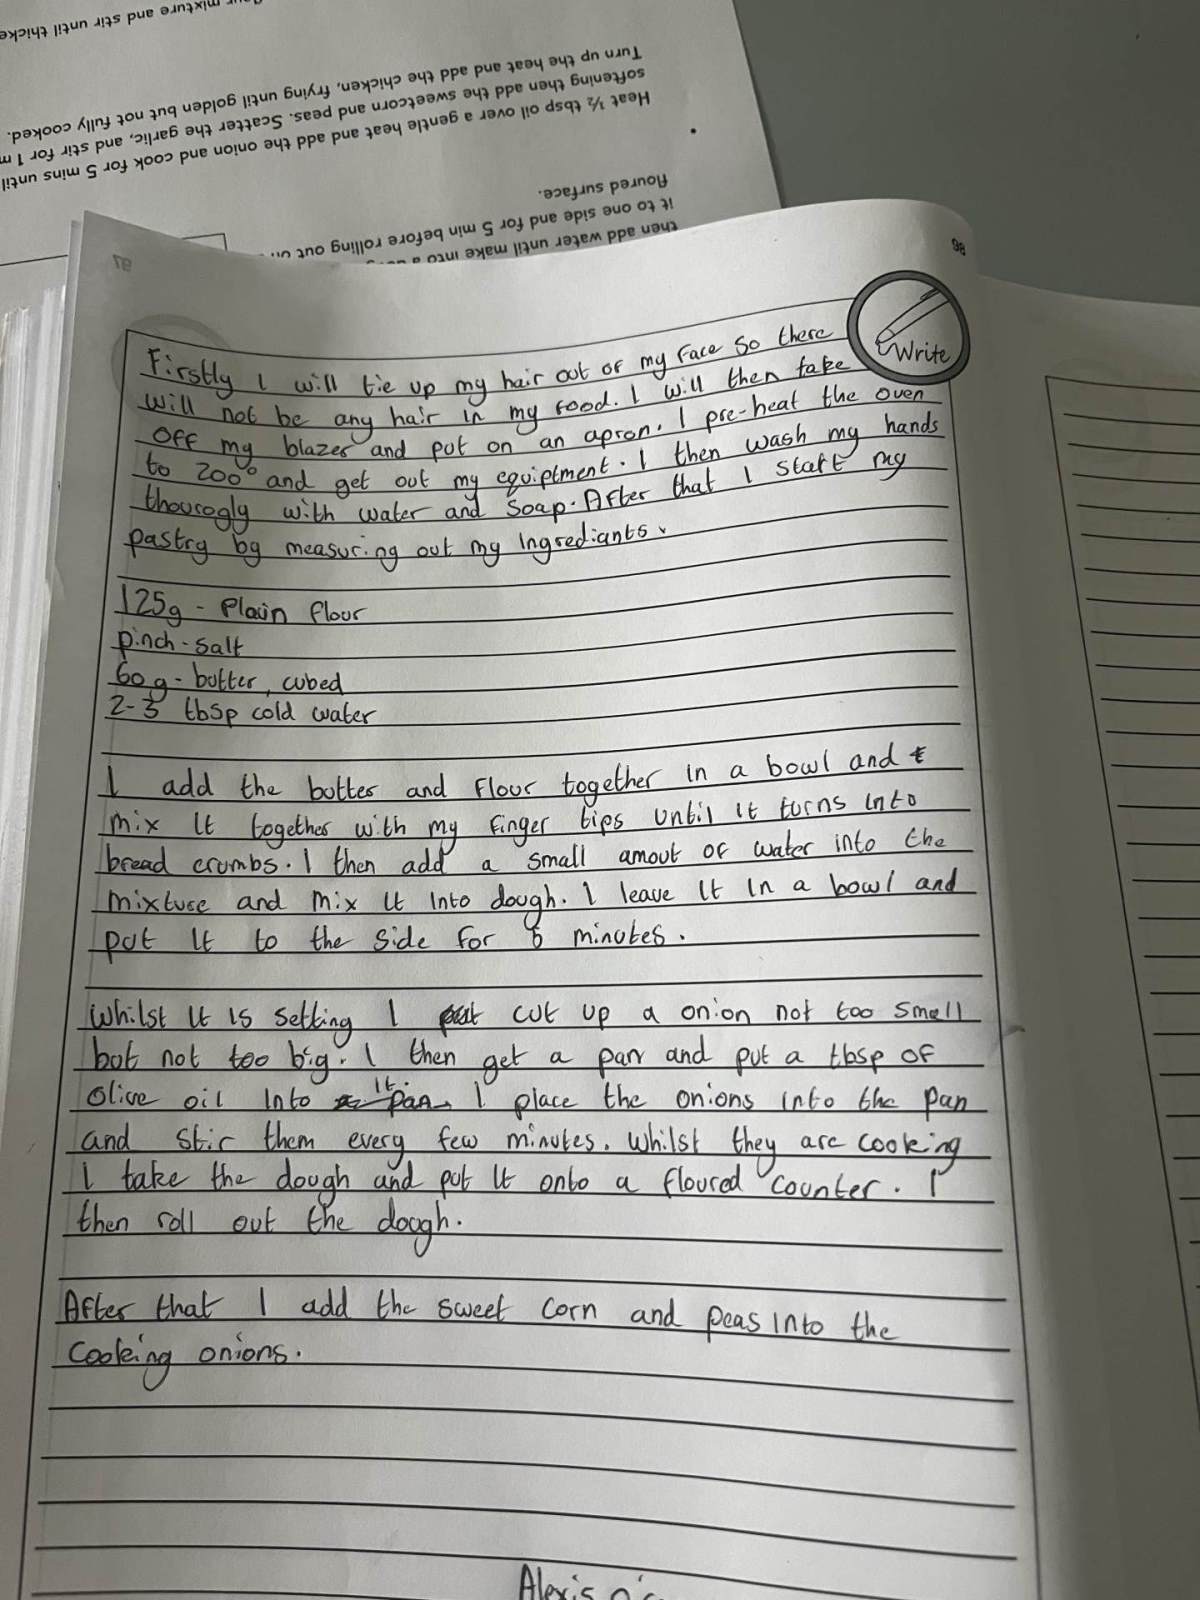 mixture and stir until thicke
Turn up the heat and add the chicken, frying until golden but not fully cooked.
softening then add the sweetcorn and peas. Scatter the garlic, and stir for 1 m
Heat ½ tbsp oil over a gentle heat and add the onion and cook for 5 mins until
floured surface.
it to one side and for 5 min before rolling out on
then add water until make into a
97
98
Write
Firstly I will tie up my hair out of my face so there
will not be any hair in my food. I will then take
off my blazer and put on an apron. I pre-heat the oven
to 200° and get out my equiptment. I then wash my hands
thourogly with water and soap. After that I start my
pastry by measuring out my Ingrediants.
125g - Plain flour
pinch - salt
60g - butter, cubed
2-3 tbsp cold water
I add the butter and flour together in a bowl and t
mix it together with my finger tips until it turns into
bread crumbs. I then add a small amout of water into the
mixture and mix it into dough. I leave it in a bowl and
put it to the side for 5 minutes.
Whilst it is setting I put cut up a onion not too small
but not too big. I then get a pan and put a tbsp of
olive oil into it. pan. I place the onions into the pan
and stir them every few minutes. Whilst they are cooking
I take the dough and put it onto a floured counter. I
then roll out the dough.
After that I add the sweet corn and peas into the
cooking onions.
Alexis